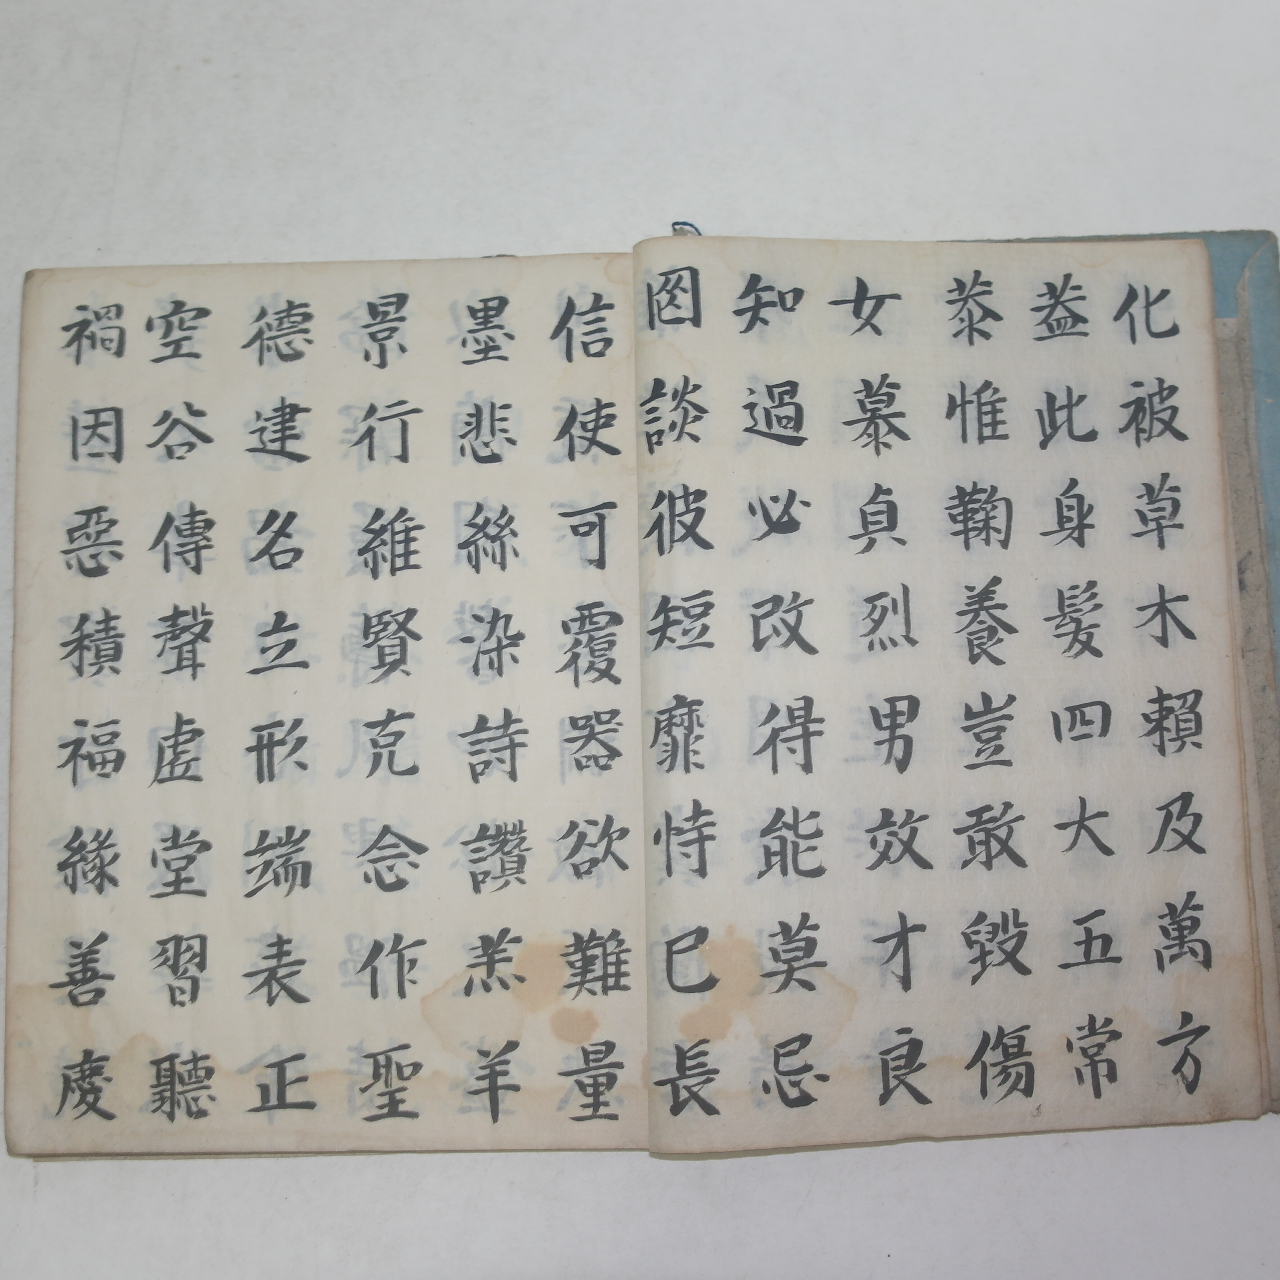 化被草木賴及萬方
蓋此身髮四大五常
恭惟鞠養豈敢毀傷
女慕貞烈男效才良
知過必改得能莫忘
罔談彼短靡恃己長
信使可覆器欲難量
墨悲絲染詩讚羔羊
景行維賢克念作聖
德建名立形端表正
空谷傳聲虛堂習聽
禍因惡積福緣善慶